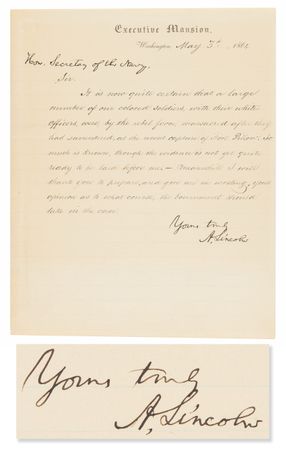 Executive Mansion,
Washington, May 3d, 1864
Hon. Secretary of the Navy.
Sir.
It is now quite certain that a large
number of our colored soldiers, with their white
officers, were by the rebel force, massacred after they
had surrendered, at the recent capture of Fort Pillow. So
much is known, though the evidence is not yet quite
ready to be laid before me. Meanwhile I will
thank you to prepare, and give me in writing your
opinion as to what course, the government should
take in the case.
Yours truly
A. Lincoln
Yours truly
A. Lincoln